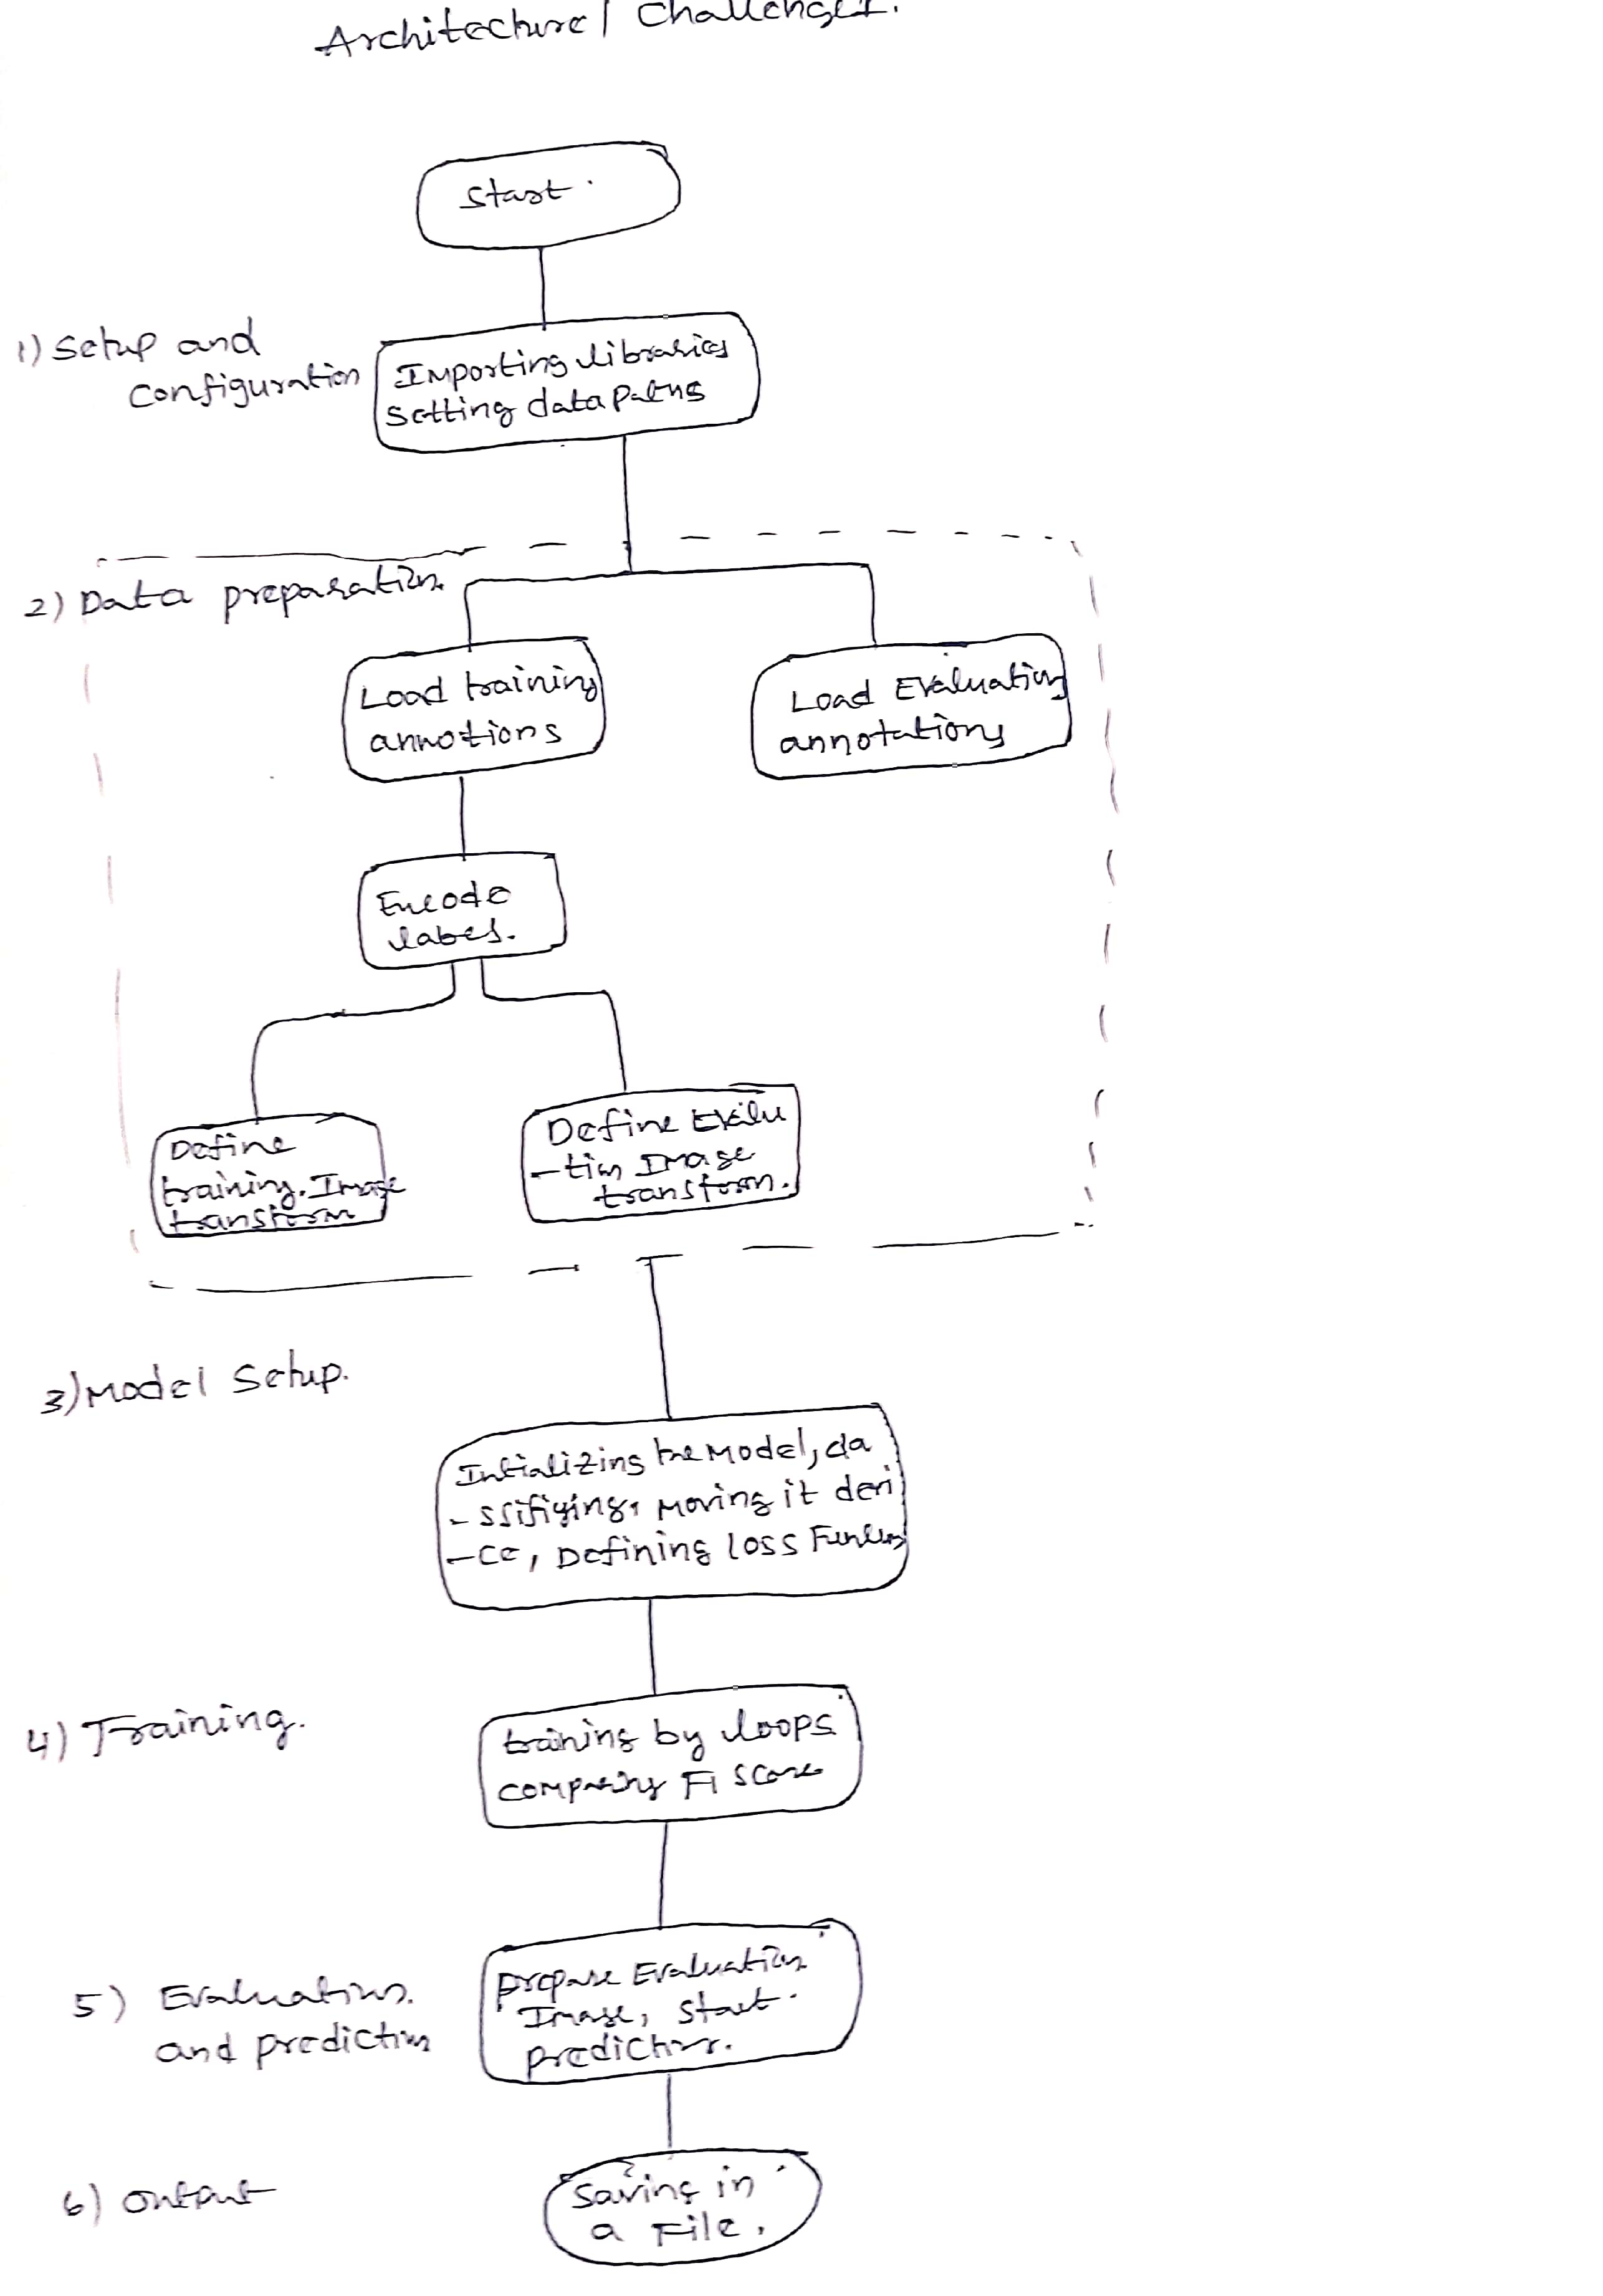 Architecture/ Challenge1.
Start.
1) Setup and
configuration
Importing libraries
Setting data paths
2) Data preparation.
Load training
annotions
Load Evaluation
annotations
Encode
labes.
Define
training. Image
transform
Define Evalu
-tion Image
transform.
3) Model Setup.
Intializing the Model, cla
- ssifiying, Moving it devi
-ce, Defining loss Function
4) Training.
training by loops
comparing F1 Score
5) Evaluation.
and prediction
prepare Evaluation
Image, Start
prediction.
6) Output
Saving in
a File.